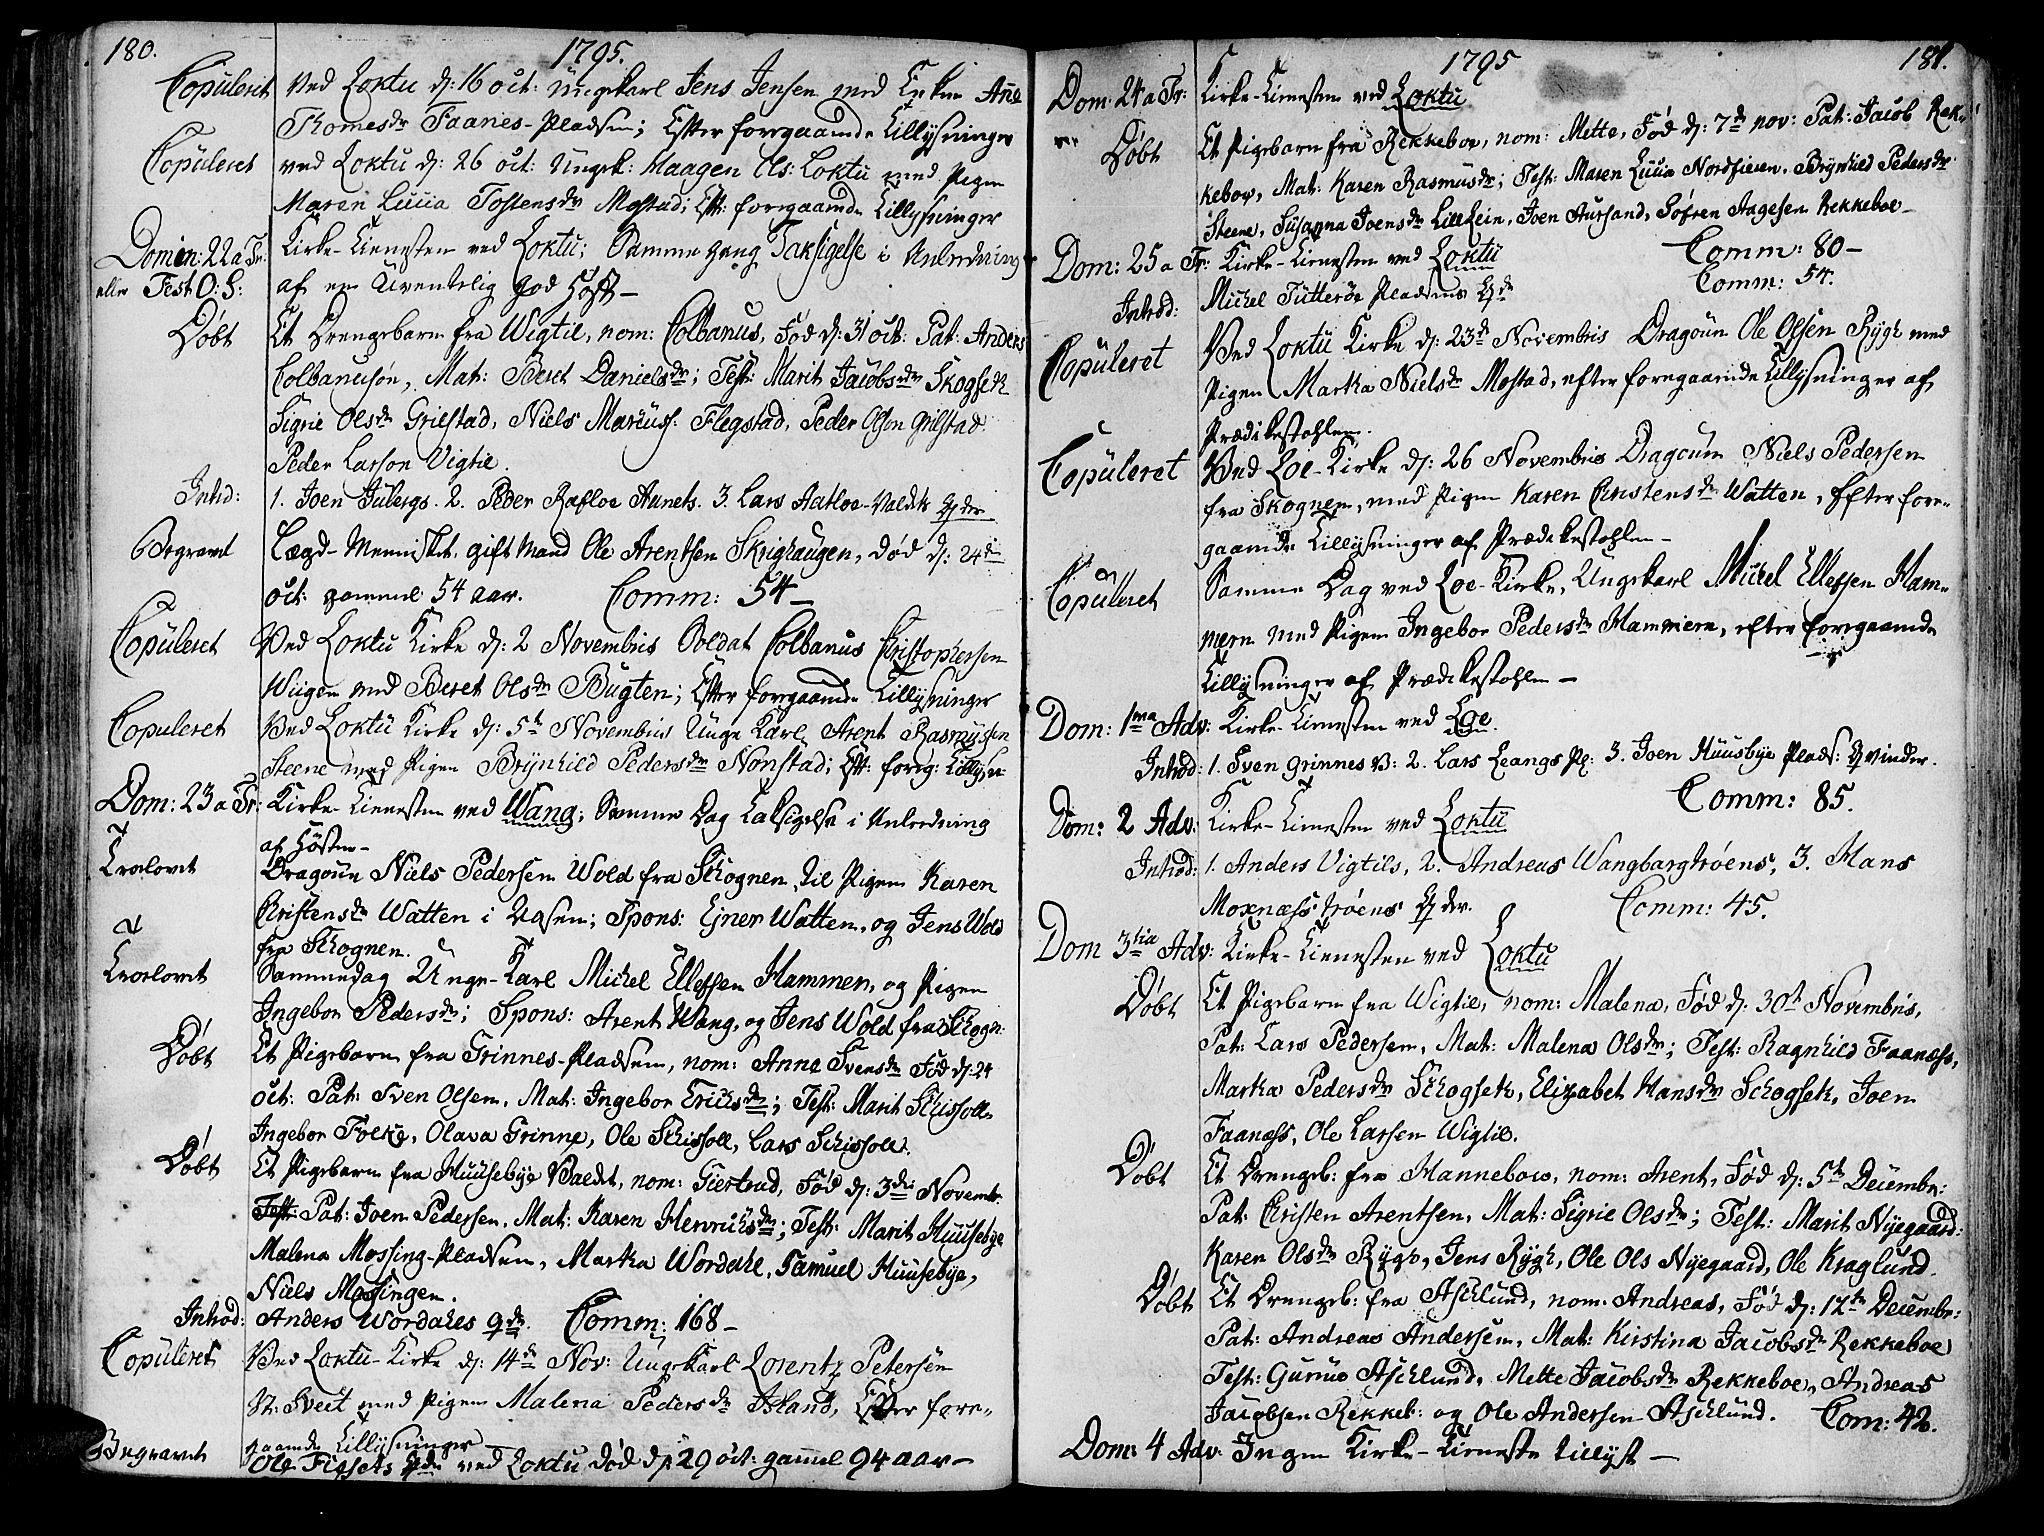 180.
1795.
Copuleret
ved Loktu d: 16 oct: ungekarl Jens Jensen med Enken Ane
Thomesdr Faanes-Pladsen; Efter foregaaende Tillysninger
Copuleret
ved Loktu d: 26 oct: Ungk: Haagen Ols: Loktu med Pigen
Maren Lucia Tostensdr Mostad; Eft: foregaaende Tillysninger
Domin: 22 a Tr:
Kirke-Tienesten ved Loktu; Samme gang Taksigelse i Anledning
eller Fest O: S:
af en Uventelig god Høst-
Døbt
Et Drengebarn fra Wigtil, nom: Colbanus, Fød d: 31 oct: Pat: Anders
Colbanusøn, Mat: Beret Danielsdr; Test: Marit Jacobsdr Skogsek
Sigrie Olsdr Grilstad, Niels Mariuss: Flegstad, Peder Olson Grilstad.
Peder Larson Vigtil.
Introd:
1. Joen Julergs. 2. Peder Rafloe Aunets. 3. Lars Aatloe-Valdets Qder
Begravet
Lægd-Mennisket, gift Mand Ole Arentsen Skrighaugen, død d: 24de
oct: gammel 54 aar. Comm: 54-
Copuleret
Ved Loktu Kirke d: 2 Novembris Soldat Colbanus Christophersen
Wiigen med Beret Olsdr Bugten; Efter foregaaende Tillysninger
Copuleret
Ved Loktu Kirke d: 5te Novembris Unge Karl Arent Rasmussen
Steene med Pigen Brynhild Pedersdr Nonstad; Eft: foreg: Tillysn-
Dom: 23 a Tr:
Kirke-Tienesten ved Wang; Samme Dag Taksigelse i Anledning
af Høsten-
Trolovet
Dragoun Niels Pedersen Wold fra Schognen, til Pigen Karen
Christensdr Watten i Aasen; Spons: Ejner Watten, og Jens Wold
fra Schognen.
Trolovet
Sammedag Unge-Karl Michel Ellefsen Hammen, og Pigen
Ingebor Pedersdr; Spons: Arent Wang, og Jens Wold fra Schogn:
Døbt
Et Pigebarn fra Grinnes-Pladsen, nom: Anna Svensdr Fød d: 24
oct: Pat: Sven Olsen, Mat: Ingebor Erichsdr; Test: Marit Schissoll.
Ingebor Folke, Olava Grinne, Ole Schissoll, Lars Schissoll.
Døbt
Et Pigebarn fra Huusebye Valdet, nom: Giertrud, Fød d: 3de Novemb:
Test: Pat: Joen Pedersen, Mat: Karen Henrichsdr; Test: Marit Huusebye
Malena Mossing-Pladsen, Marka Wordahl, Samuel Huusebye,
Niels Mossingen.
Introd:
Anders Wordahls Qde. Comm: 168-
Copuleret
Ved Loktu-Kirke d: 14de Nov: Ungekarl Lorentz Petersen
St: Sveet med Pigen Malena Pedersdr Island, Efter fore-
gaaende Tillysninger-
Begravet
Ole Fissets Qde ved Loktu død d: 29 oct: gammel 94 aar-
1795
181.
Dom: 24 a Tr:
Kirke-Tienesten ved Loktu
Døbt
Et Pigebarn fra Rekkeboe, nom: Mette, Fød d: 7de nov: Pat: Jacob Rek-
keboe, Mat: Karen Rasmusdr; Test: Maren Lucia Nordfieren, Brynhild Pedersdr
Steene, Susanna Joensdr Lillein, Joen Aursand, Søfren Aagesen Rekkeboe-
Comm: 80-
Dom: 25 a Tr:
Kirke-Tienesten ved Loktu
Comm: 54.
Introd:
Michel Tutterøe Pladsens Qde
Copuleret
Ved Loktu Kirke d: 23de Novembris Dragoun Ole Olsen Rygh med
Pigen Martha Nielsdr Mostad, efter foregaaende Tillysninger af
Prædikestohlen.
Copuleret
Ved Loe-Kirke d: 26 Novembris Dragoun Niels Pedersen
fra Skognen, med Pigen Karen Christensdr Watten, Efter fore-
gaaende Tillysninger af Prædikestohlen-
Copuleret
Samme Dag ved Loe-Kirke, Ungekarl Michel Ellefsen Ham-
mern med Pigen Ingebor Pedersdr Hammern, efter foregaaende
Tillysninger af Prædikestohlen-
Dom: 1ma Adv:
Kirke-Tienesten ved Loe.
Introd:
1. Sven Grinnes V: 2. Lars Leangs Pl: 3. Joen Huusbye Plads: Qvinder.
Comm: 85.
Dom: 2 Adv:
Kirke-Tienesten ved Loktu
Introd:
1. Anders Vigtils, 2. Andreas Wangbargtrøens, 3. Hans
Moxnæss trøens Qder. Comm: 45.
Dom 3tia Adv:
Kirke-Tienesten ved Loktu
Døbt
Et Pigebarn fra Wigtil, nom: Malena, Fød d: 30te Novembris,
Pat: Lars Pedersen, Mat: Malena Olsdr; Test: Ragnhild Faanæss,
Marka Pedersdr Schogsek, Elizabet Hansdr Schogsek, Joen
Faanæss, Ole Larsen Wigtil.
Døbt
Et Drengeb: fra Hanneboe, nom: Arent, Fød d: 5te Decembr:
Pat: Christen Arentsen, Mat: Sigrie Olsdr; Test: Marit Nyegaard:
Karen Olsdr Rygh, Jens Rygh, Ole Ols Nyegaard, Ole Kraglund.
Døbt
Et Drengeb: fra Aschlund, nom: Andreas, Fød d: 12te Decembr:
Pat: Andreas Andersen, Mat: Kirstina Jacobsdr Rekkeboe
Test: Gurue Aschlund, Mette Jacobsdr Rekkeboe, Andreas
Jacobsen Rekkeb: og Ole Andersen Aschlund. Com: 42.
Dom: 4 Adv:
Ingen Kirke-Tieneste tillyst-